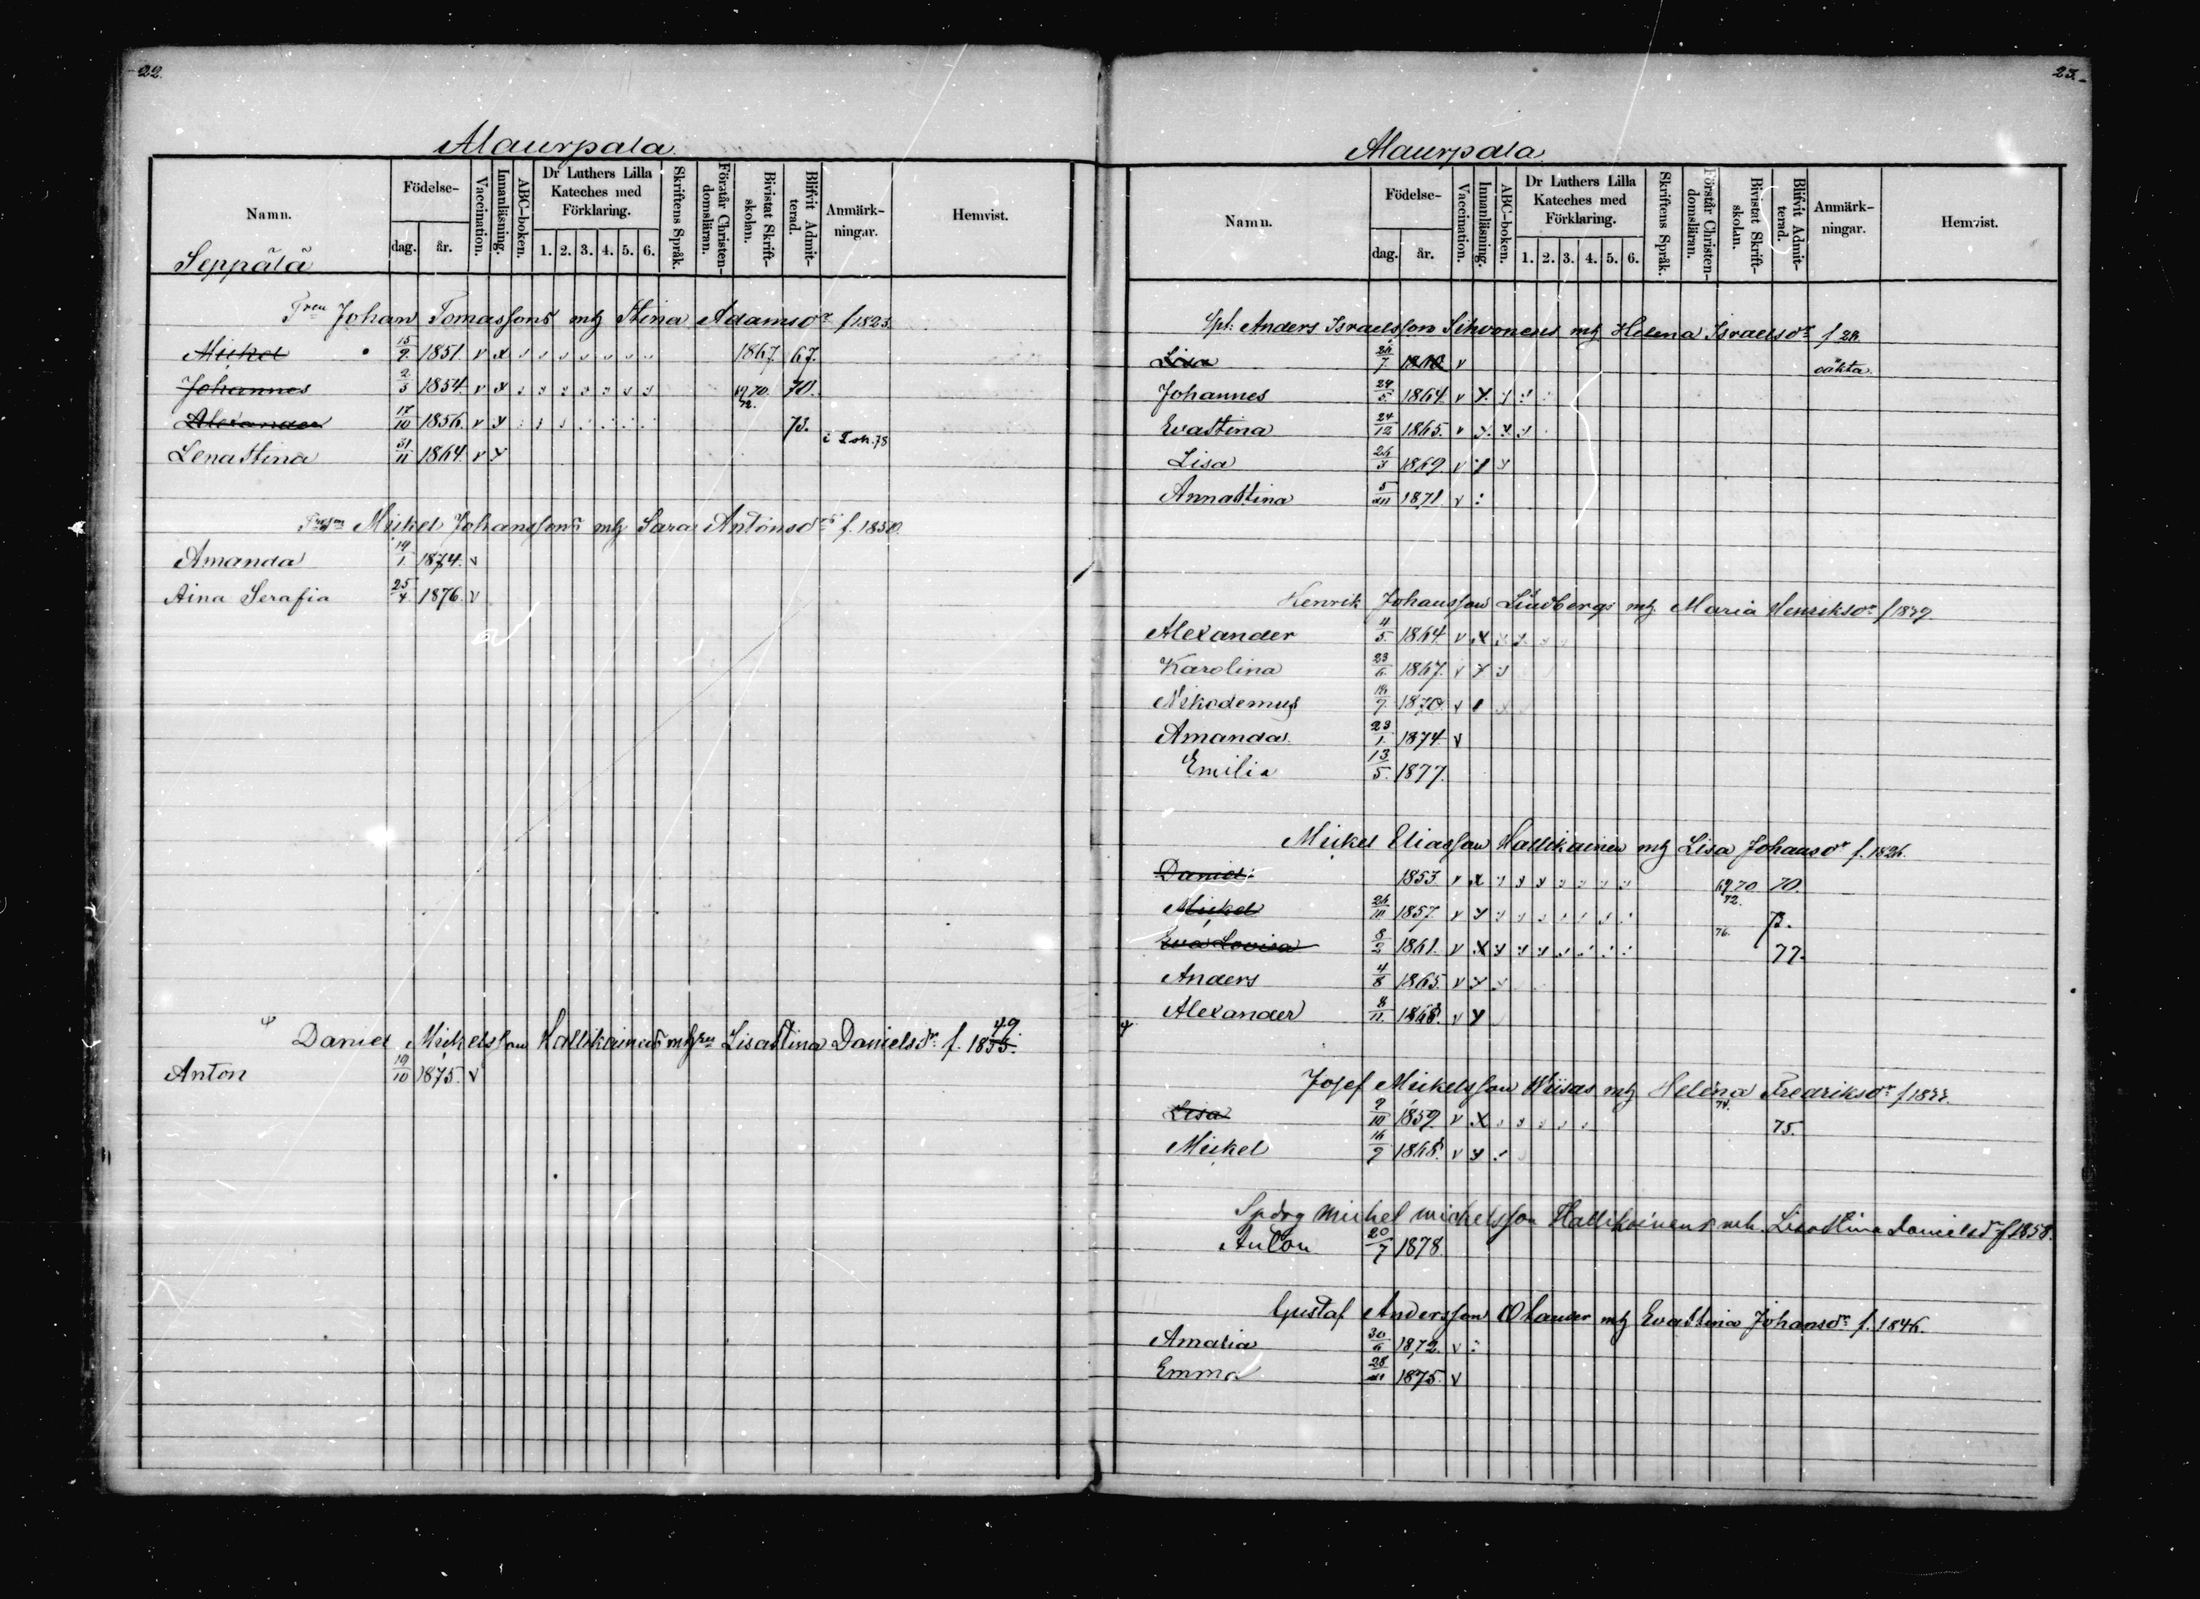 22.
Alaurpala
Namn.
Födelse-
dag. år.
Vaccination.
Innanläsning.
ABC-boken.
Dr Luthers Lilla Kateches med Förklaring.
1. 2. 3. 4. 5. 6.
Skriftens Språk.
Förstår Christen-domsläran.
Bivistat Skrift-skolan.
Blifvit Admit-terad.
Anmärk-ningar.
Hemvist.
Seppälä
Johan Tomassons mh Stina Adamsdr f 1823.
Mickel 15/9. 1851. v x 1867. 67.
Johannes 2/3 1854. v x 69 70. 72. 70.
Alexander 17/10 1856. v x 73.
Lenastina 31/11 1864. v x
Mickel Johanssons mh Sara Antonsdr f. 1850.
Amanda 19/1. 1874. v
Aina Serafia 25/4. 1876. v
Daniel Mickelsson Hallikainens Lisastina Danielsdr. f. 1855. 49.
Anton 19/10 1875. v
23.
Alaurpala
Namn.
Födelse-
dag. år.
Vaccination.
Innanläsning.
ABC-boken.
Dr Luthers Lilla Kateches med Förklaring.
1. 2. 3. 4. 5. 6.
Skriftens Språk.
Förstår Christen-domsläran.
Bivistat Skrift-skolan.
Blifvit Admit-terad.
Anmärk-ningar.
Hemvist.
Anders Israelsson Sihvonens mh Helena Israelsdr f 28.
Lisa v oäkta.
Johannes 24/5 1864. v x
Evastina 24/12 1865. v x x
Lisa 1869. v
Annastina 1871. v
Henrik Johansson Lindbergs mh. Maria Henriksdr f 1839.
Alexander 4/5. 1864. v x
Karolina 23/6. 1867. v x
Nikodemus 1870. v
Amanda. 23/1. 1874. v
Emilia 13/5. 1877.
Mickel Eliasson Hallikainen mh Lisa Johansdr f. 1826.
Daniel 1853. v x 69 70 72. 70.
Mickel 1857. v x 73.
Eva Lovisa 8/2 1861. v x 76. 77.
Anders 4/8 1865. v x
Alexander 8/11. 1868. v x
Josef Mickelsson Wiisas mh Helena Fredriksdr
Lisa 9/10 1859. v x 74. 75.
Mickel 16/9 1868. v x
Mickel Mickelsson Hallikainens Lisastina Danielsdr f 1858.
Anton 20/7 1878.
Gustaf Andersson mh Evastina Johansdr f. 1846.
Amalia 30/6 1872. v
Emma 1875. v